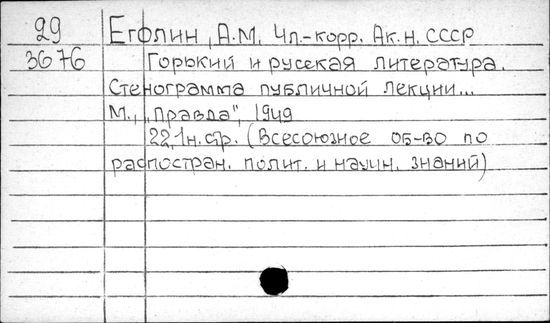 29 Еголин, А.М. Чл.-корр. Ак.н. СССР
3676 Горький и русская литература.
Стенограмма публичной лекции...
М., "Правда", 1949
22,1н.стр. (Всесоюзное об-во по
распостран. полит. и научн. знаний)